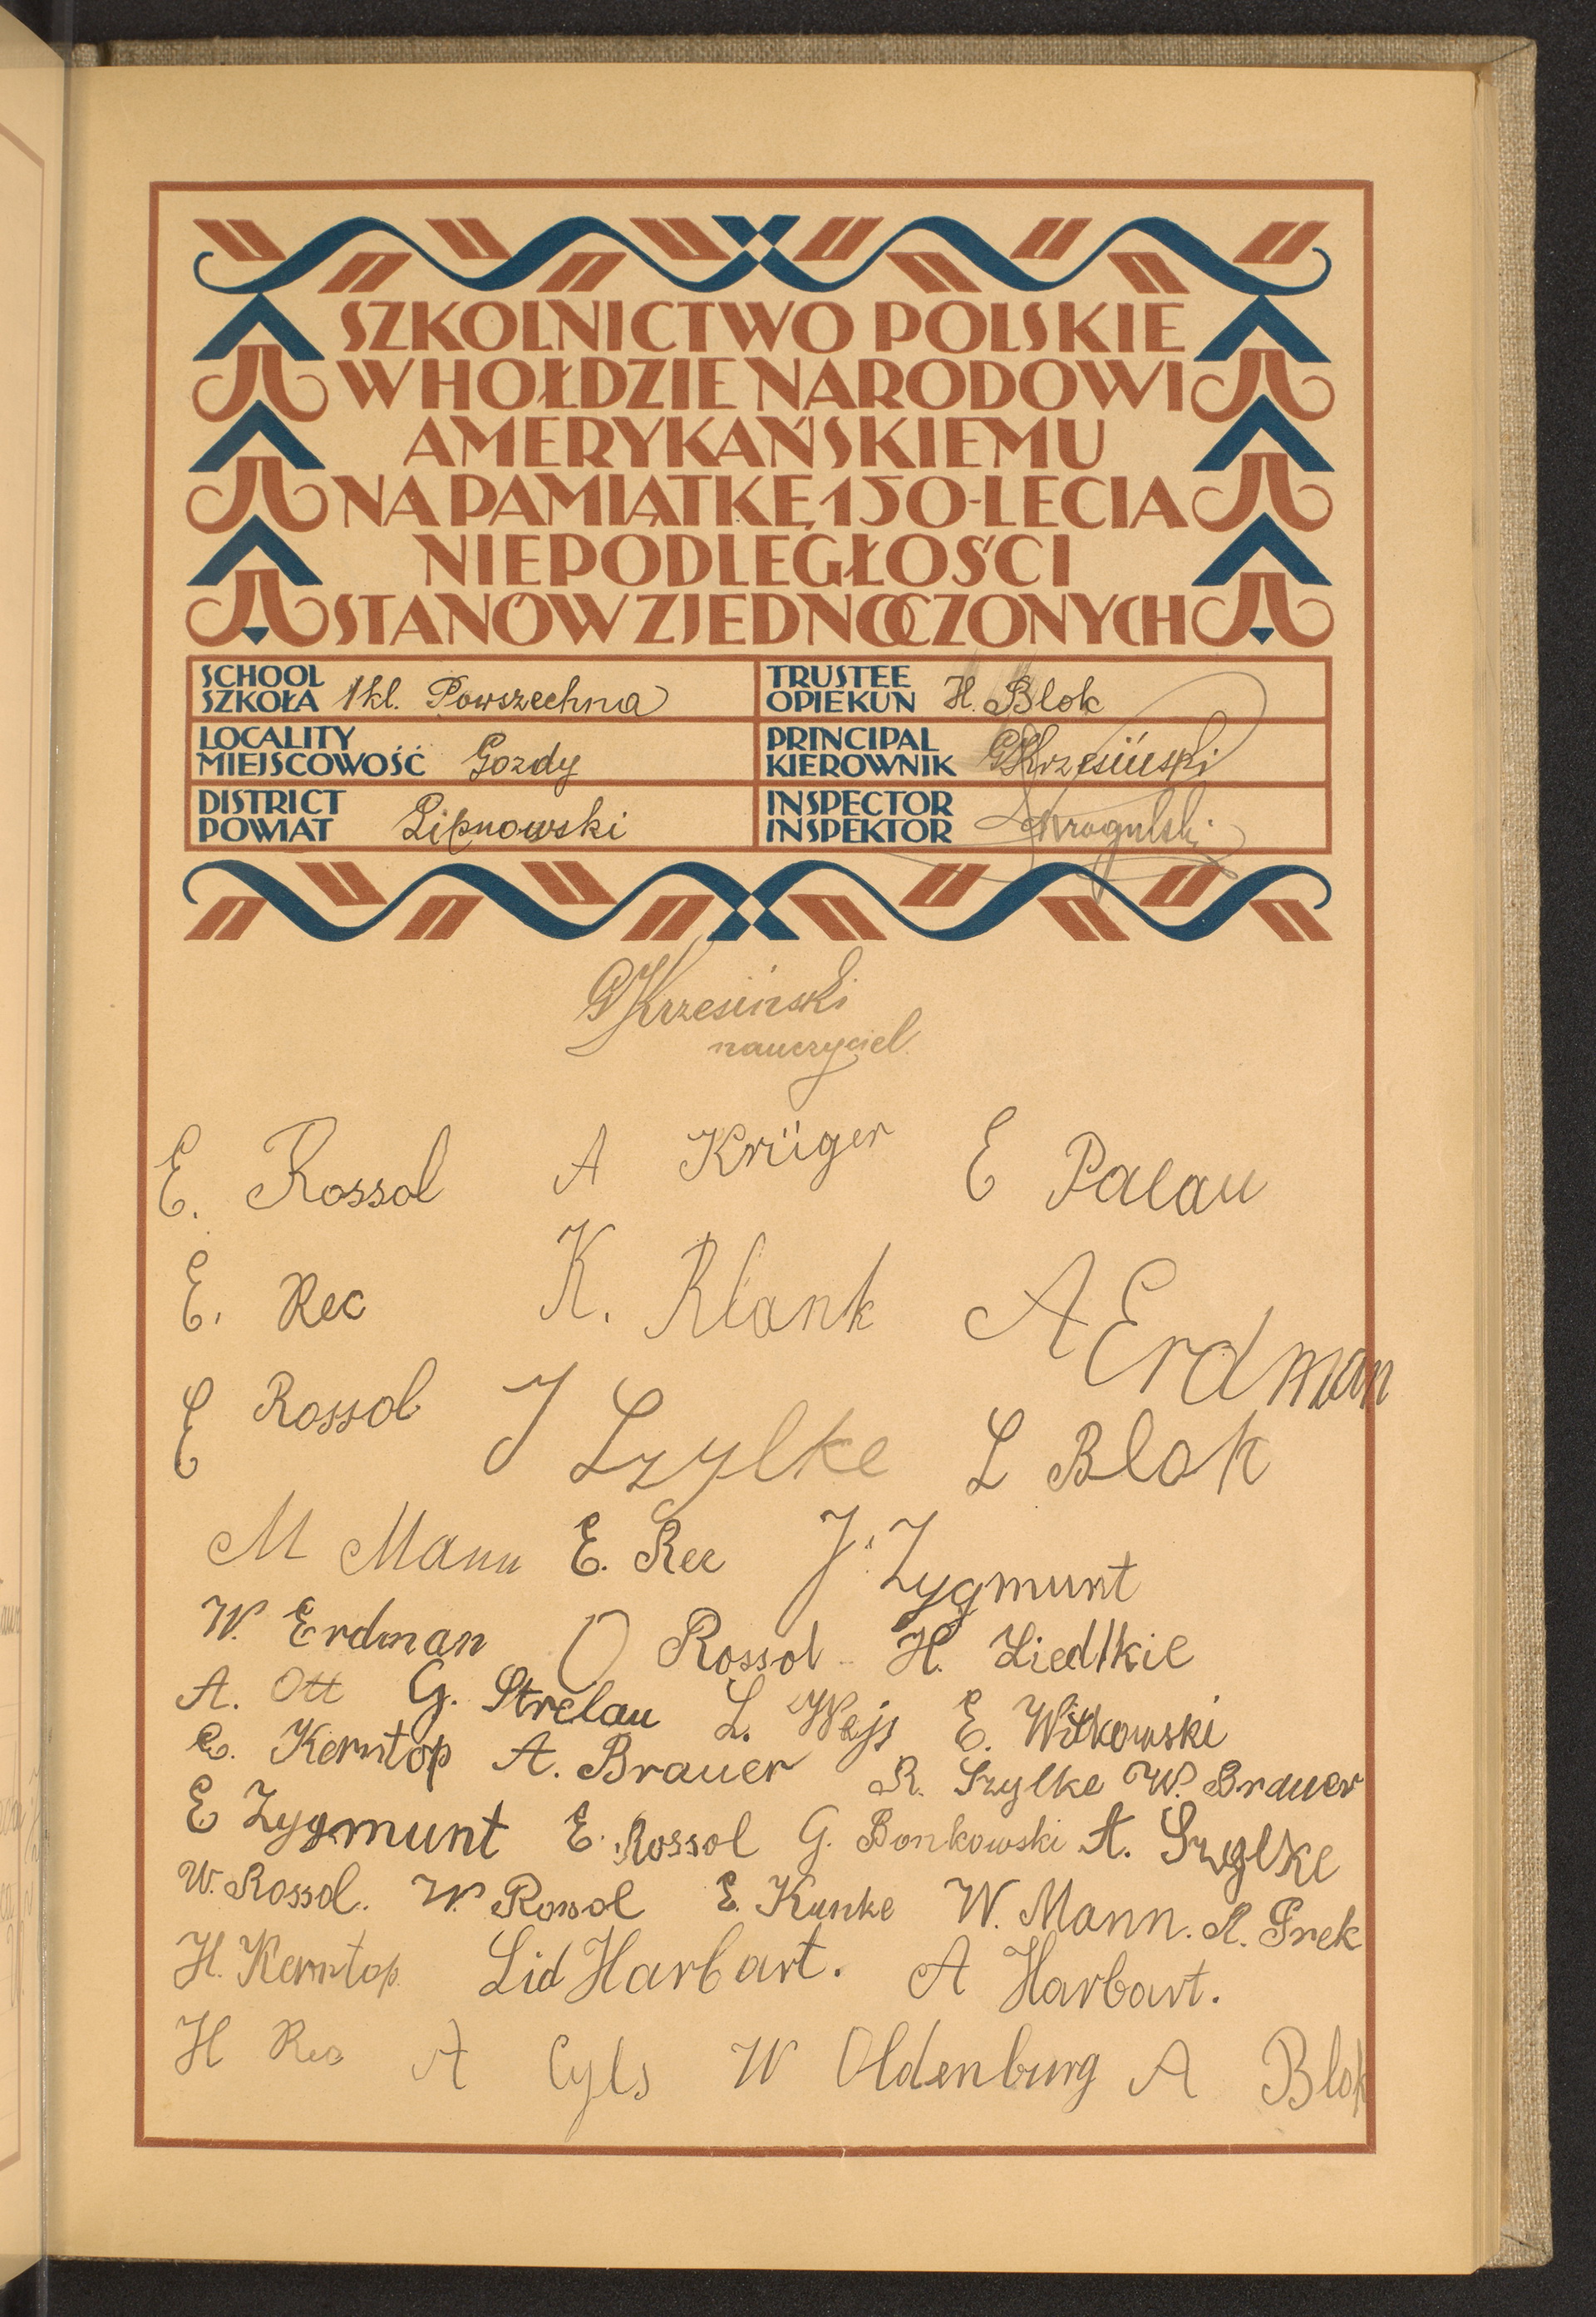 SZKOLNICTWO POLSKIE
W HOŁDZIE NARODOWI
AMERYKAŃSKIEMU
NA PAMIĄTKĘ 150-LECIA
NIEPODLEGŁOŚCI
STANÓW ZJEDNOCZONYCH
SCHOOL
SZKOŁA 1 kl. Powszechna
TRUSTEE
OPIEKUN H. Blok
LOCALITY
MIEJSCOWOŚĆ Gozdy
PRINCIPAL
KIEROWNIK G Krzesiński
DISTRICT
POWIAT Lipnowski
INSPECTOR
INSPEKTOR
G Krzesiński
nauczyciel
E. Rossol A Krüger E Palau
E. Rec K. Blank A Erdman
E Rossol J Szylke L Blok
M Mann E. Rec J. Zygmunt
W. Erdman O Rossol H. Liedtkie
A. Ott G. Strelau L. Wejs E. Witkowski
E. Kerntop A. Brauer R. Szylke W. Brauer
E Zygmunt E. Rossol G. Bonkowski A. Szylke
W. Rossol. W. Rossol E. Kunke W. Mann. A. Prek
H. Kerntop. Lid Harbart. A Harbart.
H Rec A Cyls W Oldenburg A Blok